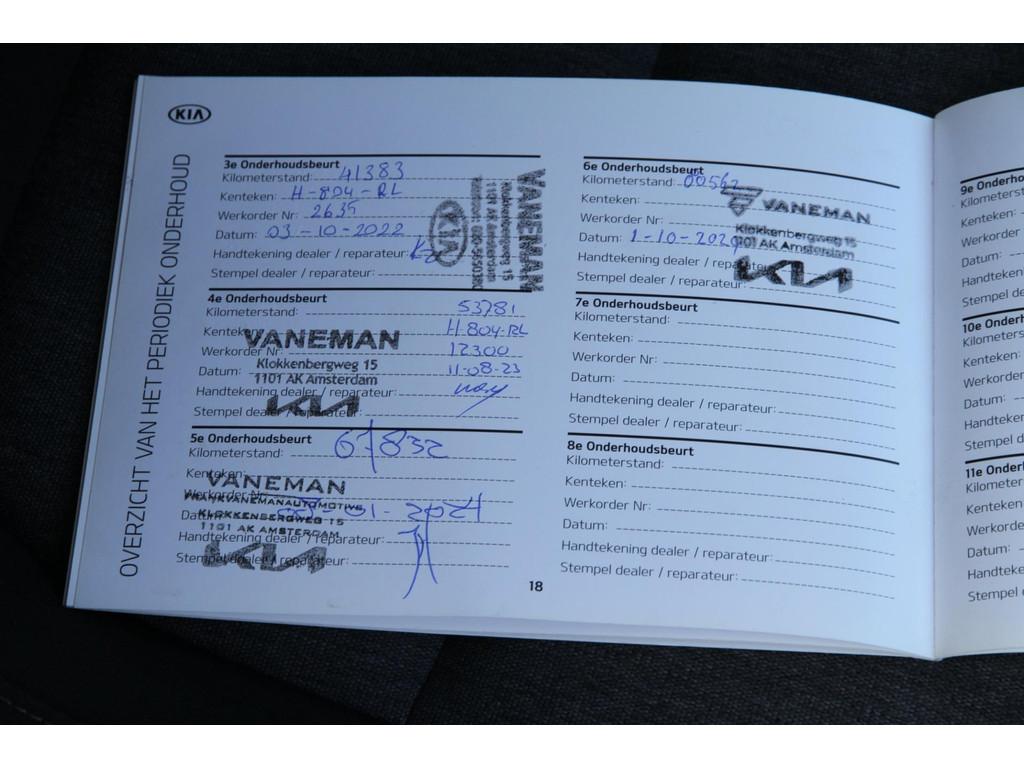 KIA
OVERZICHT VAN HET PERIODIEK ONDERHOUD
3e Onderhoudsbeurt
Kilometerstand: 41383
Kenteken: H-804-RL
Werkorder Nr: 2635
Datum: 03-10-2022
Handtekening dealer / reparateur:
Stempel dealer / reparateur:
VANEMAN
Klokkenbergweg 15
1101 AK Amsterdam
KIA
4e Onderhoudsbeurt
Kilometerstand: 53781
Kenteken: H-804-RL
Werkorder Nr: 12300
Datum: 11-08-23
Handtekening dealer / reparateur:
Stempel dealer / reparateur:
VANEMAN
Klokkenbergweg 15
1101 AK Amsterdam
KIA
5e Onderhoudsbeurt
Kilometerstand: 67832
Kenteken:
Werkorder Nr:
Datum: -01-2024
Handtekening dealer / reparateur:
Stempel dealer / reparateur:
VANEMAN
FRANKVANEMANAUTOMOTIVE
KLOKKENBERGWEG 15
1101 AK AMSTERDAM
KIA
6e Onderhoudsbeurt
Kilometerstand:
Kenteken:
Werkorder Nr:
Datum: 1-10-202
Handtekening dealer / reparateur:
Stempel dealer / reparateur:
VANEMAN
Klokkenbergweg 15
1101 AK Amsterdam
KIA
7e Onderhoudsbeurt
Kilometerstand:
Kenteken:
Werkorder Nr:
Datum:
Handtekening dealer / reparateur:
Stempel dealer / reparateur:
8e Onderhoudsbeurt
Kilometerstand:
Kenteken:
Werkorder Nr:
Datum:
Handtekening dealer / reparateur:
Stempel dealer / reparateur:
18
9e Onderho
Kilometerst
Kenteken:
Werkorder
Datum:
Handteken
Stempel de
10e Onderh
Kilometers
Kenteken:
Werkorder
Datum:
Handteker
Stempel d
11e Onder
Kilometer
Kenteken
Werkorde
Datum:
Handteke
Stempel